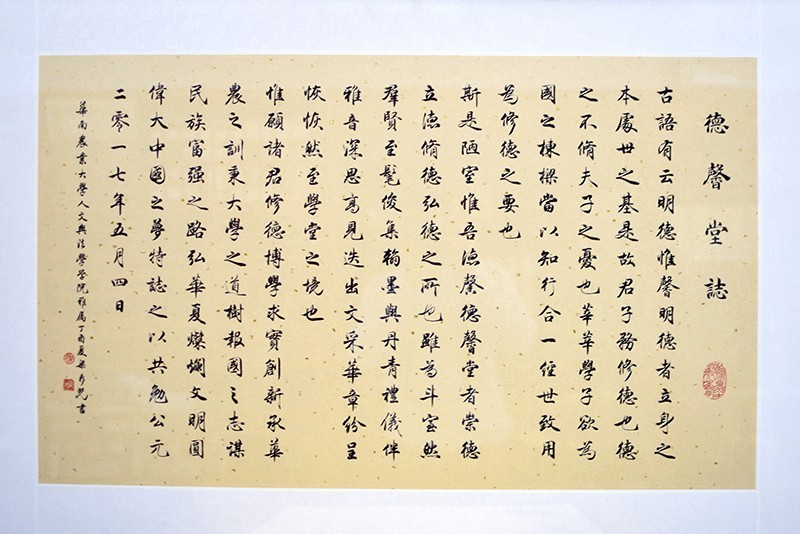 德馨堂誌
古語有云明德惟馨明德者立身之
本處世之基是故君子務修德也德
之不脩夫子之憂也莘莘學子欲為
國之棟樑當以知行合一經世致用
為修德之要也
斯是陋室惟吾德馨德馨堂者崇德
立德脩德弘德之所也雖為斗室然
羣賢至髦俊集翰墨與丹青禮儀伴
雅音深思高見迭出文采華章紛呈
恢恢然至學堂之境也
惟願諸君修德博學求實創新承華
農之訓秉大學之道樹報國之志謀
民族富强之路弘華夏燦爛文明圓
偉大中國之夢特誌之以共勉公元
二零一七年五月四日
華南農業大學人文與法學學院雅属丁酉夏書